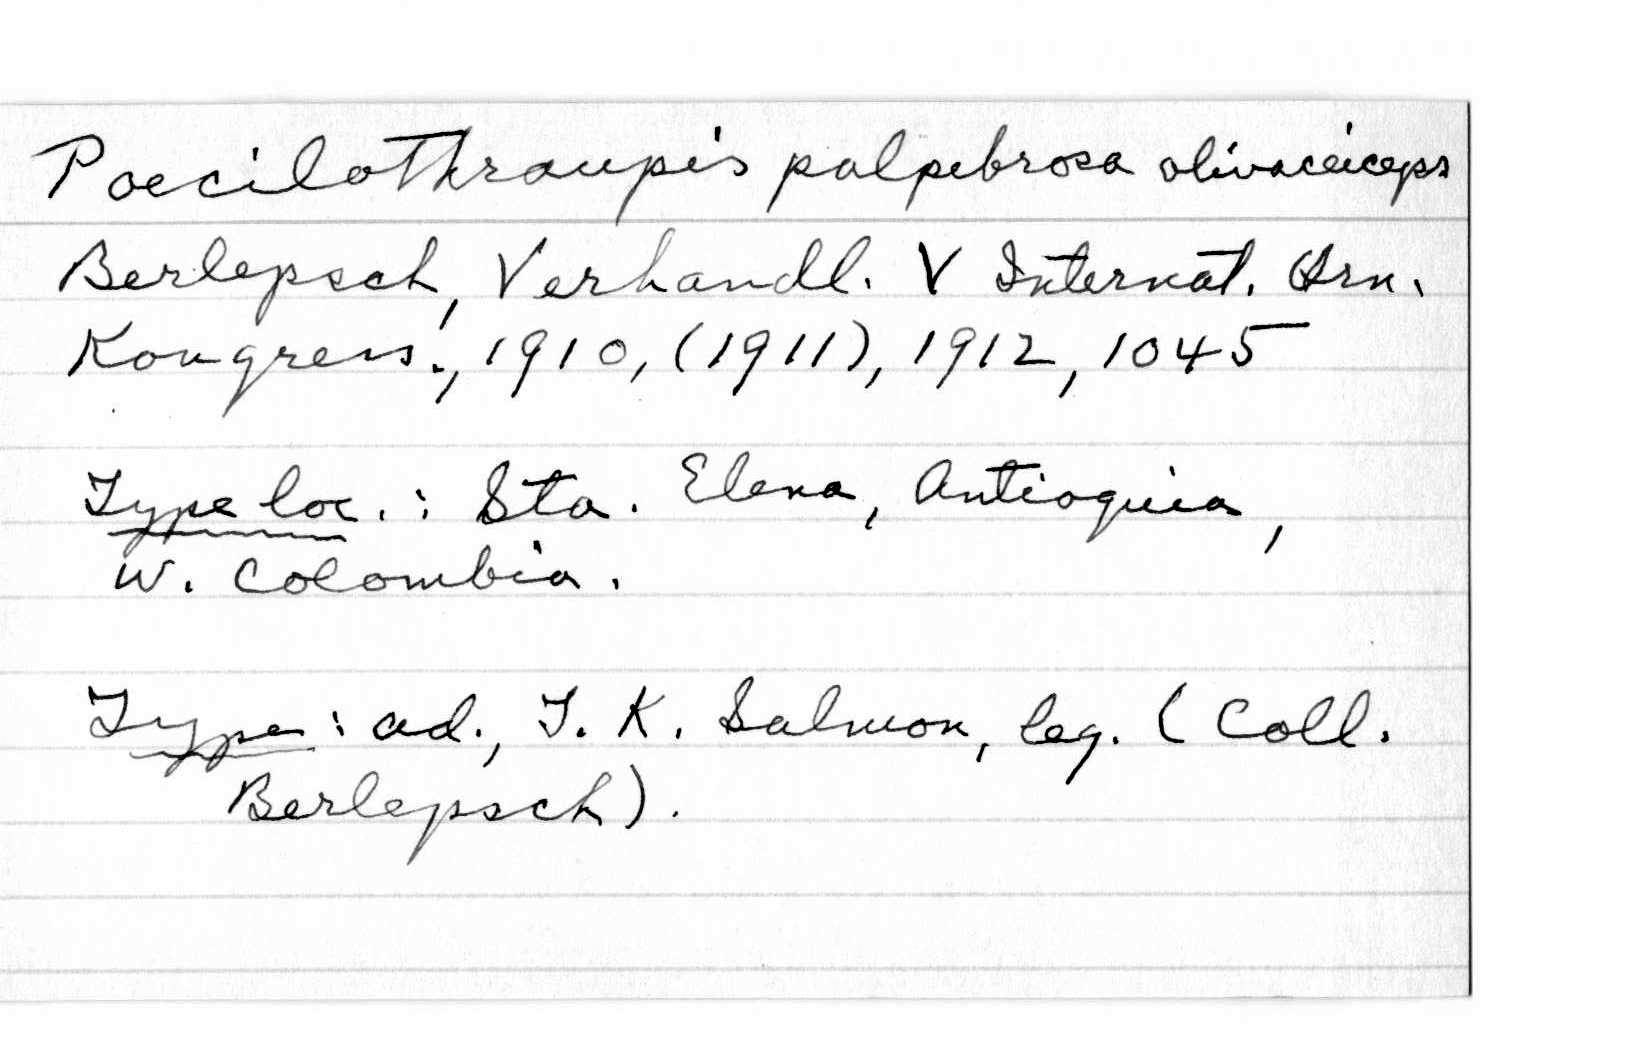 Poecilothraupis palpebrosa olivaceiceps
Berlepsch, Verhandl. V Internat. Orn.
Kongress., 1910, (1911), 1912, 1045
Type loc.: Sta. Elena, Antioquia,
W. Colombia.
Type: ad., T. K. Salmon, leg. (Coll.
Berlepsch).